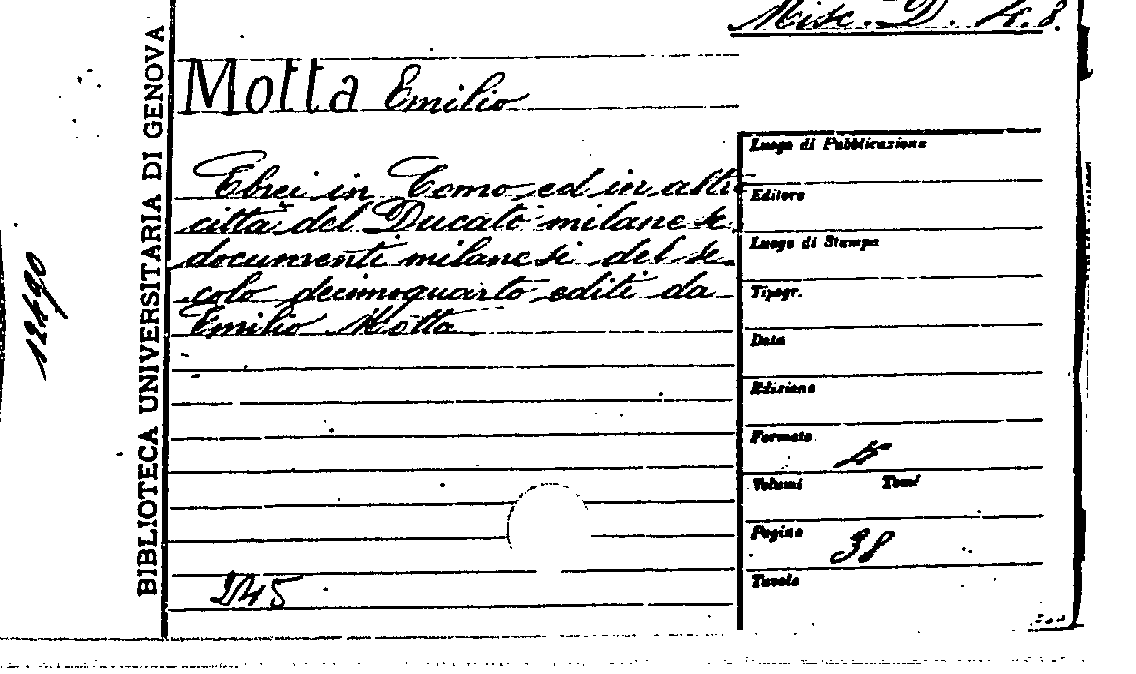 Misc. D. 4. 8.
BIBLIOTECA UNIVERSITARIA DI GENOVA
12490
Motta Emilio
Ebrei in Como ed in altre
città del Ducato milanese.
documenti milanesi del se-
colo decimoquarto editi da
Emilio Motta
245
Luogo di Pubblicazione
Editore
Luogo di Stampa
Tipogr.
Data
Edizione
Formato 4
Volumi Tomi
Pagine 38
Tavole